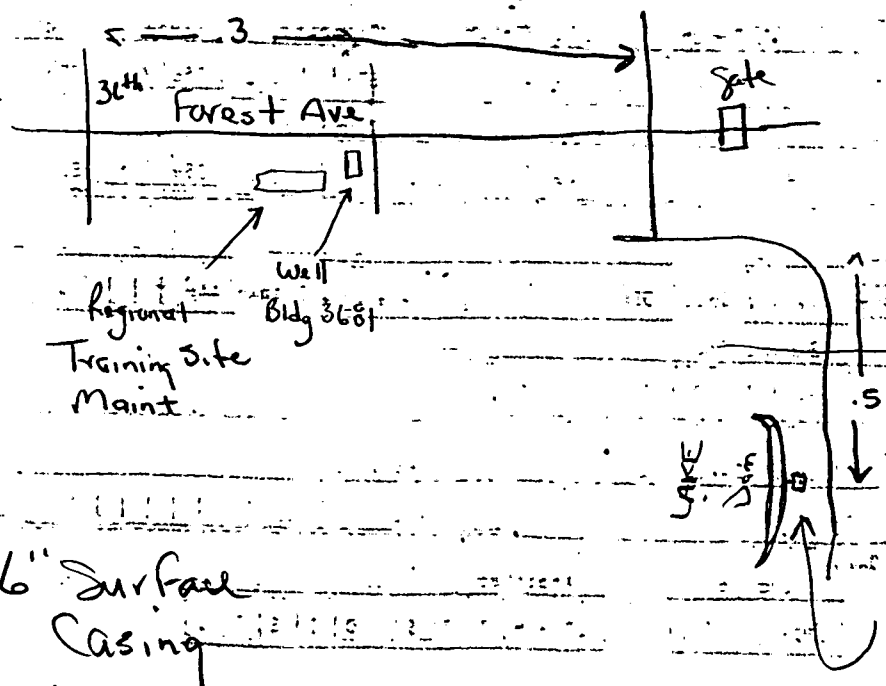 3
36th
Forest Ave
Gate
Well
Bldg 3601
Regional
Training Site
Maint.
.5
LAKE
Dam
6" Surface
Casing